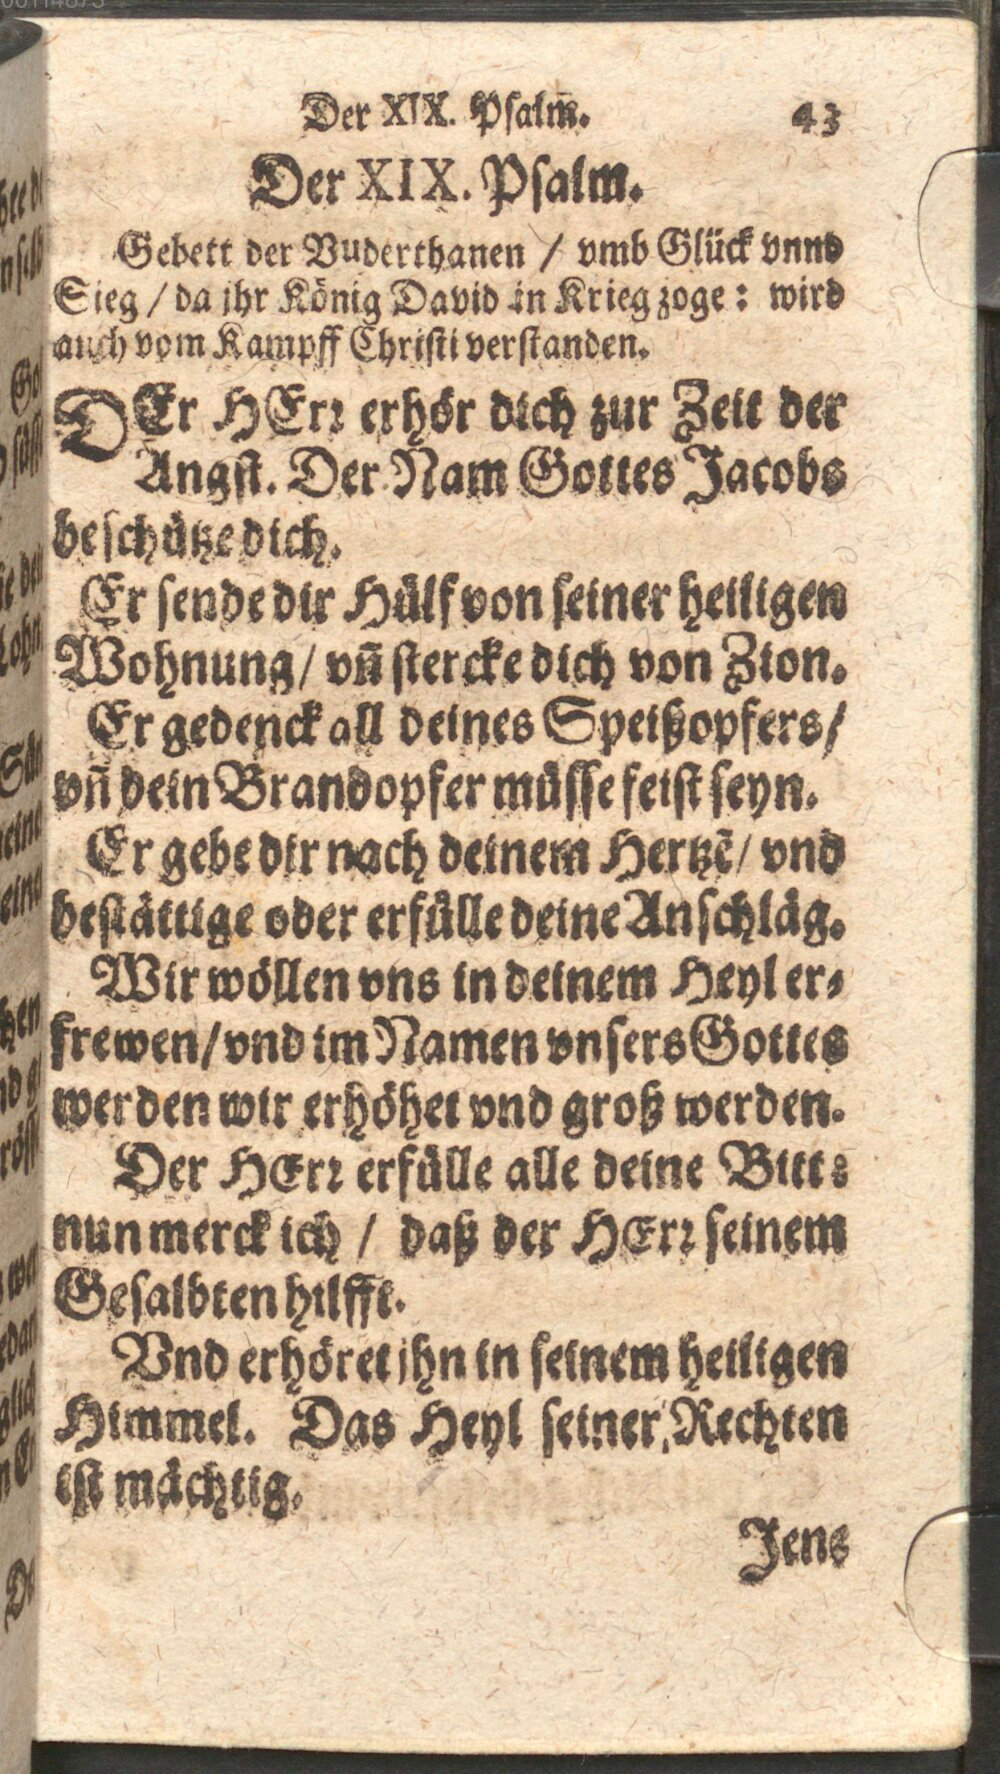 Der XIX. Psalm̃. 43
Der XIX. Psalm.
Gebett der Vuderthanen / vmb Glück vnnd
Sieg / da jhr König David in Krieg zoge: wird
auch vom Kampff Christi verstanden.
DEr HErr erhör dich zur Zeit der
Angst. Der Nam Gottes Jacobs
beschütze dich.
Er sende dir Hülf von seiner heiligen
Wohnung / vñ stercke dich von Zion.
Er gedenck all deines Speißopfers /
vñ dein Brandopfer müsse feist seyn.
Er gebe dir nach deinem Hertzẽ / vnd
bestättige oder erfülle deine Anschläg.
Wir wöllen vns in deinem Heyl er-
frewen / vnd im Namen vnsers Gottes
werden wir erhöhet vnd groß werden.
Der HErr erfülle alle deine Bitt:
nun merck ich / daß der HErr seinem
Gesalbten hilfft.
Vnd erhöret jhn in seinem heiligen
Himmel. Das Heyl seiner Rechten
ist mächtig.
Jens